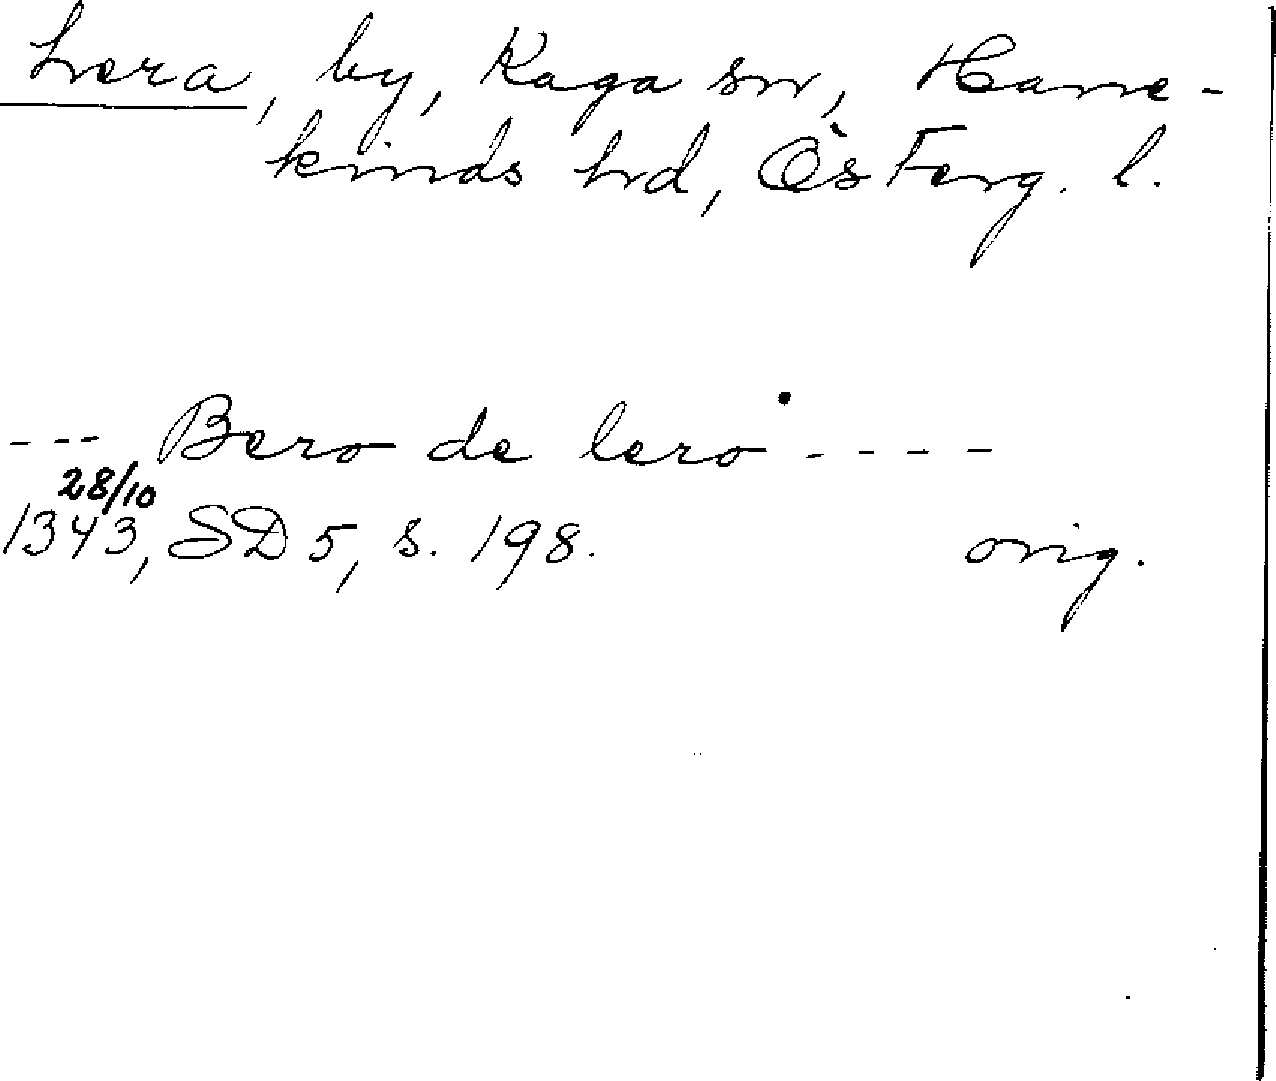 Lera, by, Kaga sn, Hane-
kinds hrd, Österg. l.
--- Bero de lero ----
28/10
1343, SD 5, s. 198. orig.